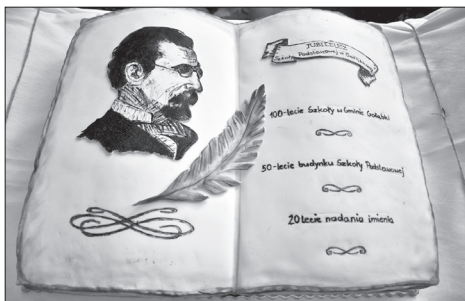 JUBILEUSZ
Szkoły Podstawowej w
100-lecie Szkoły w Gminie Gołąbki
50-lecie budynku Szkoły Podstawowej
20 lecie nadania imienia